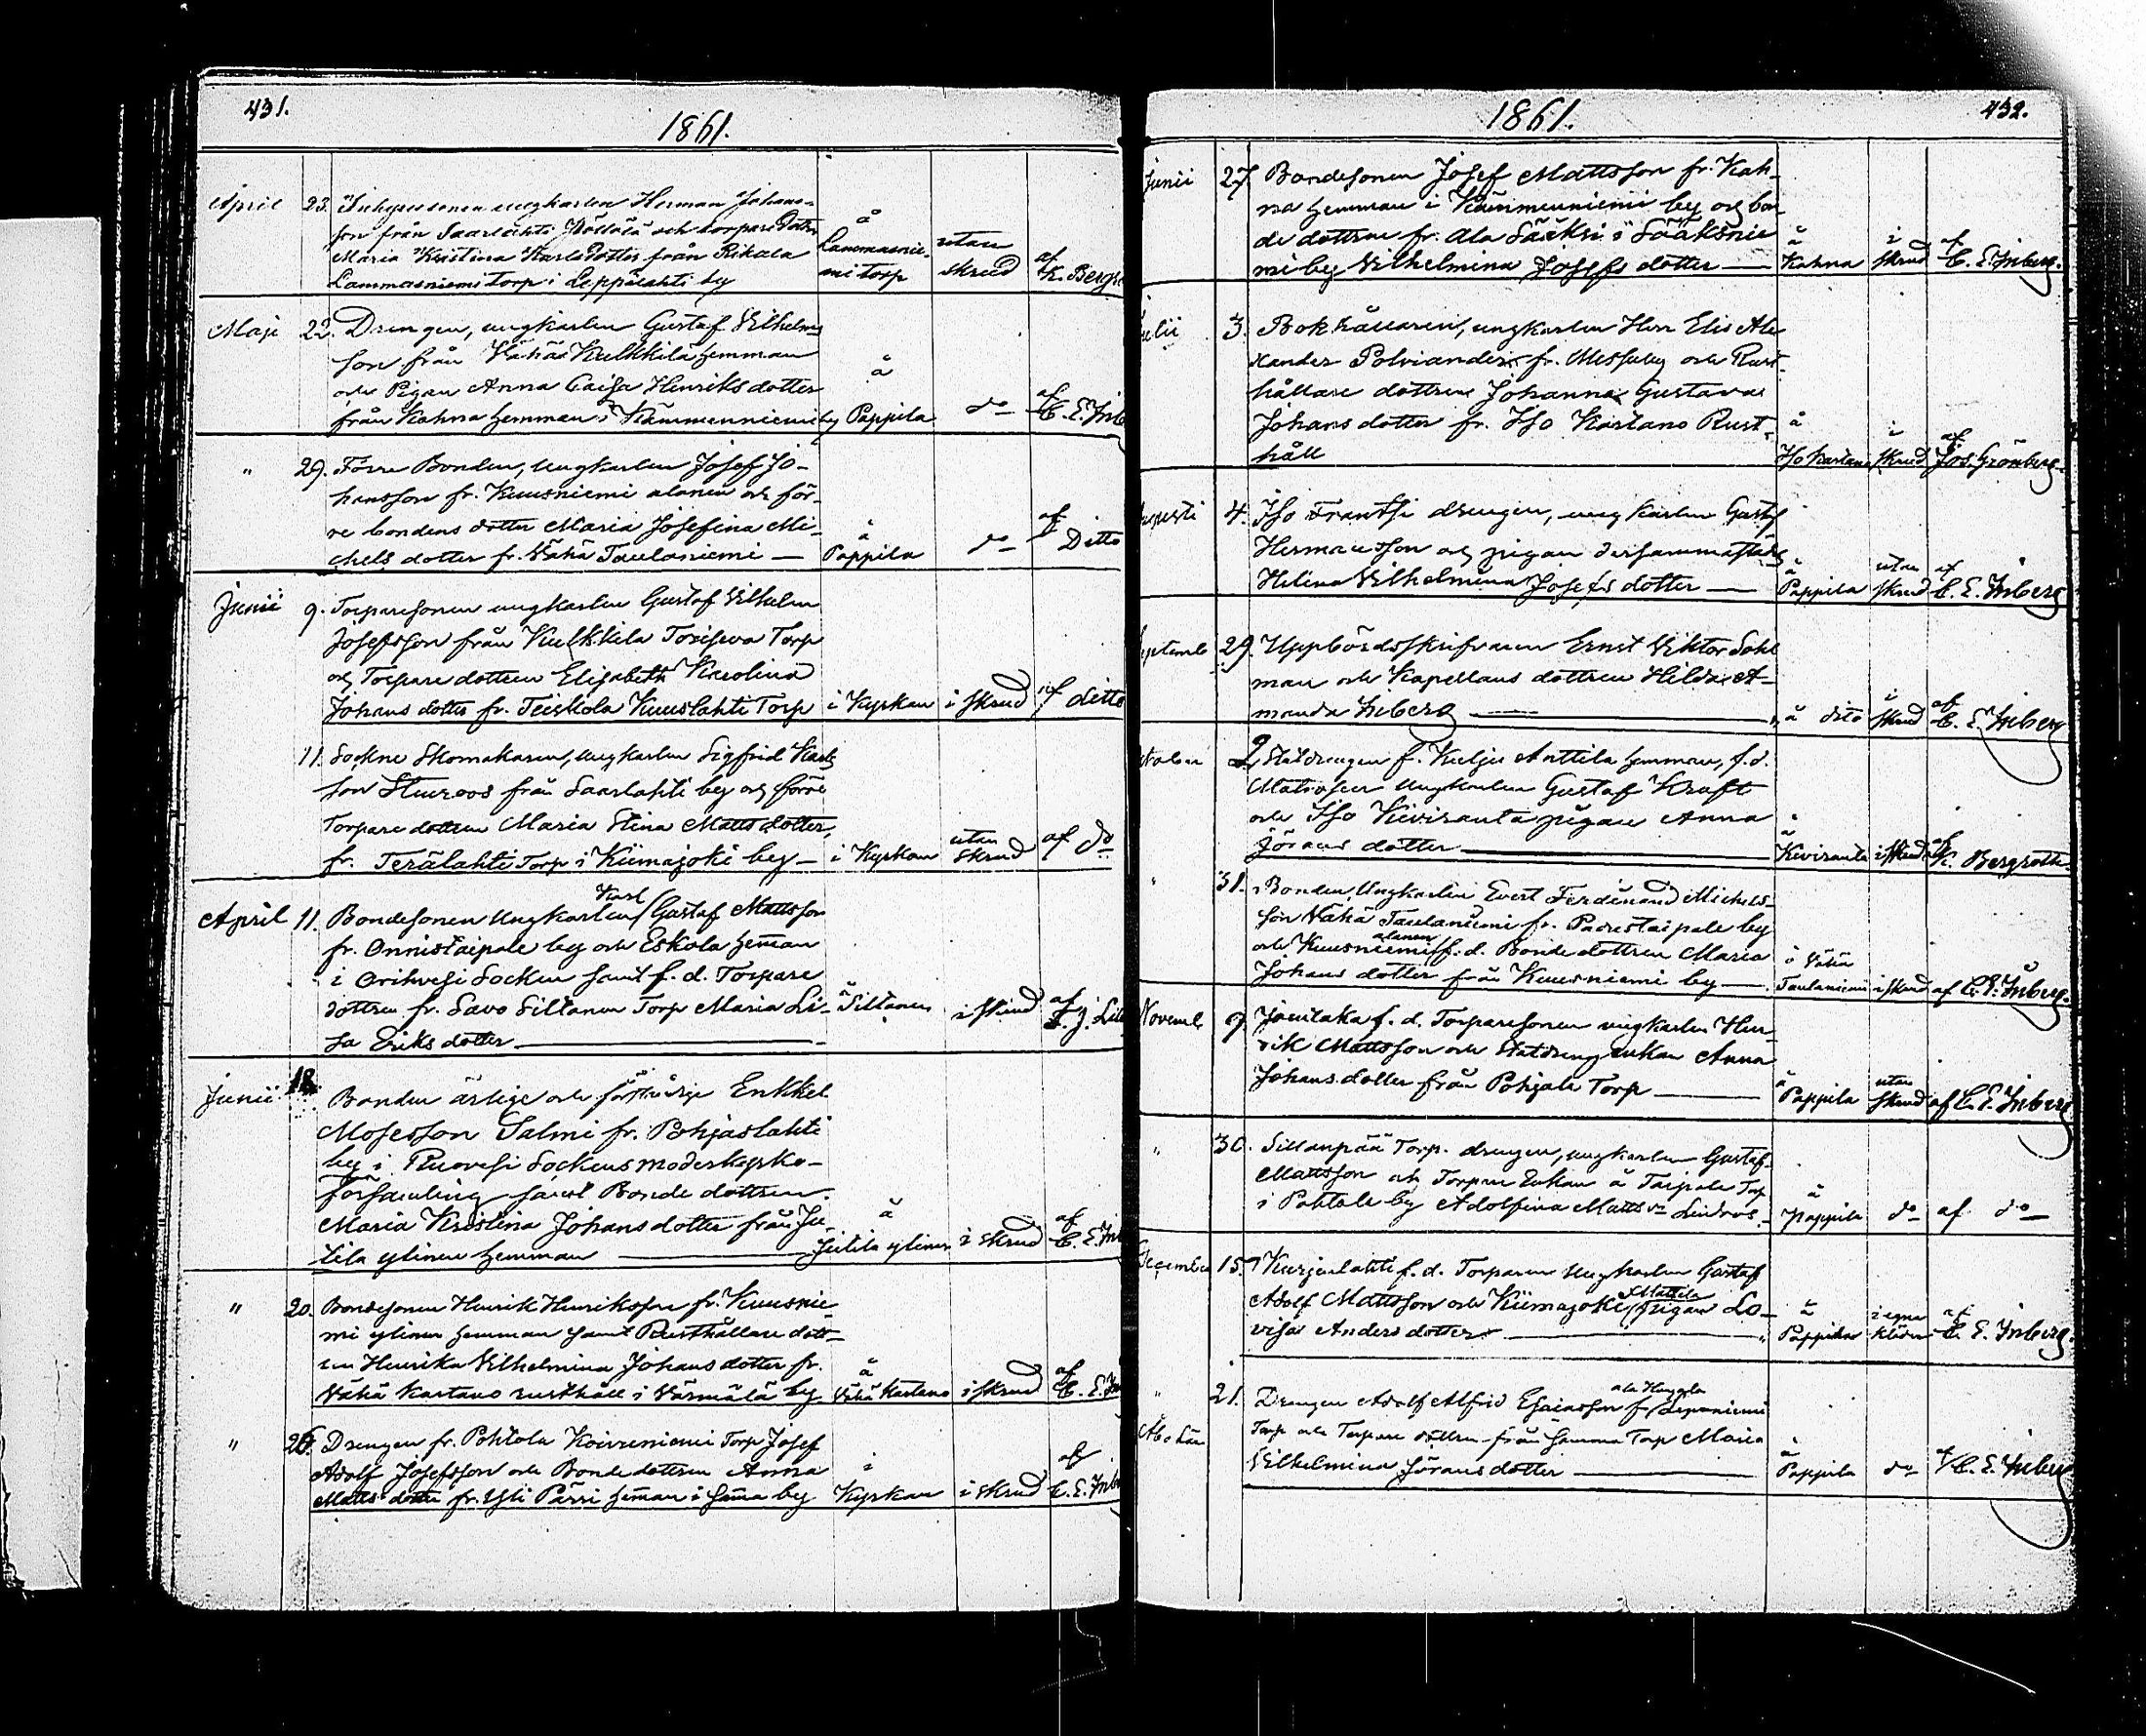 431.
1861.
April 23. Inhysesonen ungkarlen Herman Johans-
son från Saarlahti Pöllölä och torpare Dottern
Maria Kristina Karls Dotter från Rikala
Lammasniemi torp i Leppälahti by
å Lammasnie-
mi torp
utan
skrud
af
K. Bergr
Maji 22. Drengen, ungkarlen Gustaf Vilhelms
son från Vähä Kulkkila hemman
och Pigan Anna Caisa Henriks dotter
från Kahna hemman i Kämmenniemi by
å
Pappila
do
af
C. E. Inb
" 29. Förre Bonden, ungkarlen Josef Jo-
hansson fr. Kuusniemi alanen och för-
re bondens dotter Maria Josefina Mi-
chels dotter fr. Vähä Taulaniemi —
å
Pappila
do
af
Ditto
Junii 9. Torparesonen ungkarlen Gustaf Vilhelm
Josefsson från Kulkkila Torp
och Torpare dottren Elisabeth Karolina
Johans dotter fr. Teiskola Kuuslahti Torp
i Kyrkan
i skrud
af ditto
11. Sockne Skomakaren, ungkarlen Sigfrid Karls
son Stuuroos från Saarlahti by och förre
Torpare dottren Maria Stina Matts dotter,
fr. Terälahti Torp i Kiimajoki by —
i Kyrkan
utan
skrud
af do
April 11. Bondesonen Ungkarlen Karl Gustaf Mattsson
fr. Onnistaipale by och Eskola heman
i Orihvesi Socken samt f. d. Torpare
dottren fr. Savo Siltanen Torp Maria Li-
sa Eriks dotter —
å Siltanen
i skrud
af
Junii 18. Bonden ärlige och Enkkel
Mosesson Salmi fr. Pohjaslahti
by i Ruovesi Sockens moderkyrko-
församling samt Bonde dottren
Maria Kristina Johans dotter från Ju-
tila ylinen hemman —
å
Jutila ylinen
i skrud
af
C. E. Inb
" 20. Bondesonen Henrik Henriksson fr. Kuusnie-
mi ylinen hemman samt Rusthållare dott-
ren Henrika Vilhelmina Johans dotter fr.
Vähä Kartano rusthåll i Värmälä by
å
Vähä Kartano
i skrud
af
C. E. In
" 26. Drengen fr. Pohtola Koivuniemi Torp Josef
Adolf Josefsson och Bonde dottren Anna
Matts dotter fr. Yli Pärri heman i sama by
i
Kyrkan
i skrud
af
C. E. Inb
432.
1861.
Junii 27. Bondesonen Josef Mattsson fr. Kah-
na hemman i Kämmenniemi by och bon
de dottren fr. Ala Sääksi i Sääksnie
mi by Vilhelmina Josefs dotter —
å
Kahna
i
skrud
af
C. E. Inberg.
Julii 3. Bokhållaren, ungkarlen Herr Elis Ale
xander Polviander fr. Messuby och Rust-
hållare dottren Johanna Gustava
Johans dotter fr. Iso Kartano Rust-
håll
å
Iso Kartano
i
skrud
af
Jos. Grönberg.
Augusti 4. Iso Frantsi drengen, ungkarlen Gustaf
Hermansson och pigan dersammastädes
Helena Vilhelmina Josefs dotter —
å
Pappila
utan
skrud
af
C. E. Inberg
Septemb 29. Uppbördsskrifvaren Ernst Viktor Sohl
man och Kapellans dottren Hilda A-
manda Inberg —
å dito
i
skrud
af
C. E. Inberg
Octobr 2. Statdrengen f. Kulju Anttila hemman, f. d.
Matrosen Ungkarlen Gustaf Kraft
och Iso Kiviranta pigan Anna
Jörans dotter —
å
Kiviranta
i skrud
af
K. Bergroth.
" 31. Bonden, Ungkarlen Evert Ferdinand Michels-
son Vähä Taulaniemi fr. Padustaipale by
och Kuusniemi alanen f. d. Bonde dottren Maria
Johans dotter från Kuusniemi by —
å Vähä
Taulaniemi
i skrud
af C. E. Inberg.
Novemb. 9. f. d. Torparesonen ungkarlen Hen-
rik Mattsson och Statdreng enkan Anna
Johans dotter från Pohjala Torp —
å
Pappila
utan
skrud
af C. E. Inberg
" 30. Sillanpää Torp. drengen, ungkarlen Gustaf
Mattsson och Torpare Enkan å Taipale Torp
i Pohtola by Adolfina Matts dr Lindroos.
å
Pappila
do
af do
December 15. Kurjenlahti f. d. Torparen Ungkarlen Gustaf
Adolf Mattsson och Kiimajoki Mattila pigan Lo-
visa Anders dotter —
å
Pappila
i egna
kläder
af
C. E. Inberg.
" 21. Drengen Adolf Alfrid Esaiasson fr. ala
Torp och Torpare dottren från samma Torp Maria
Vilhelmina Jörans dotter —
Åbo Län
å
Pappila
do
af
C. E. Inberg